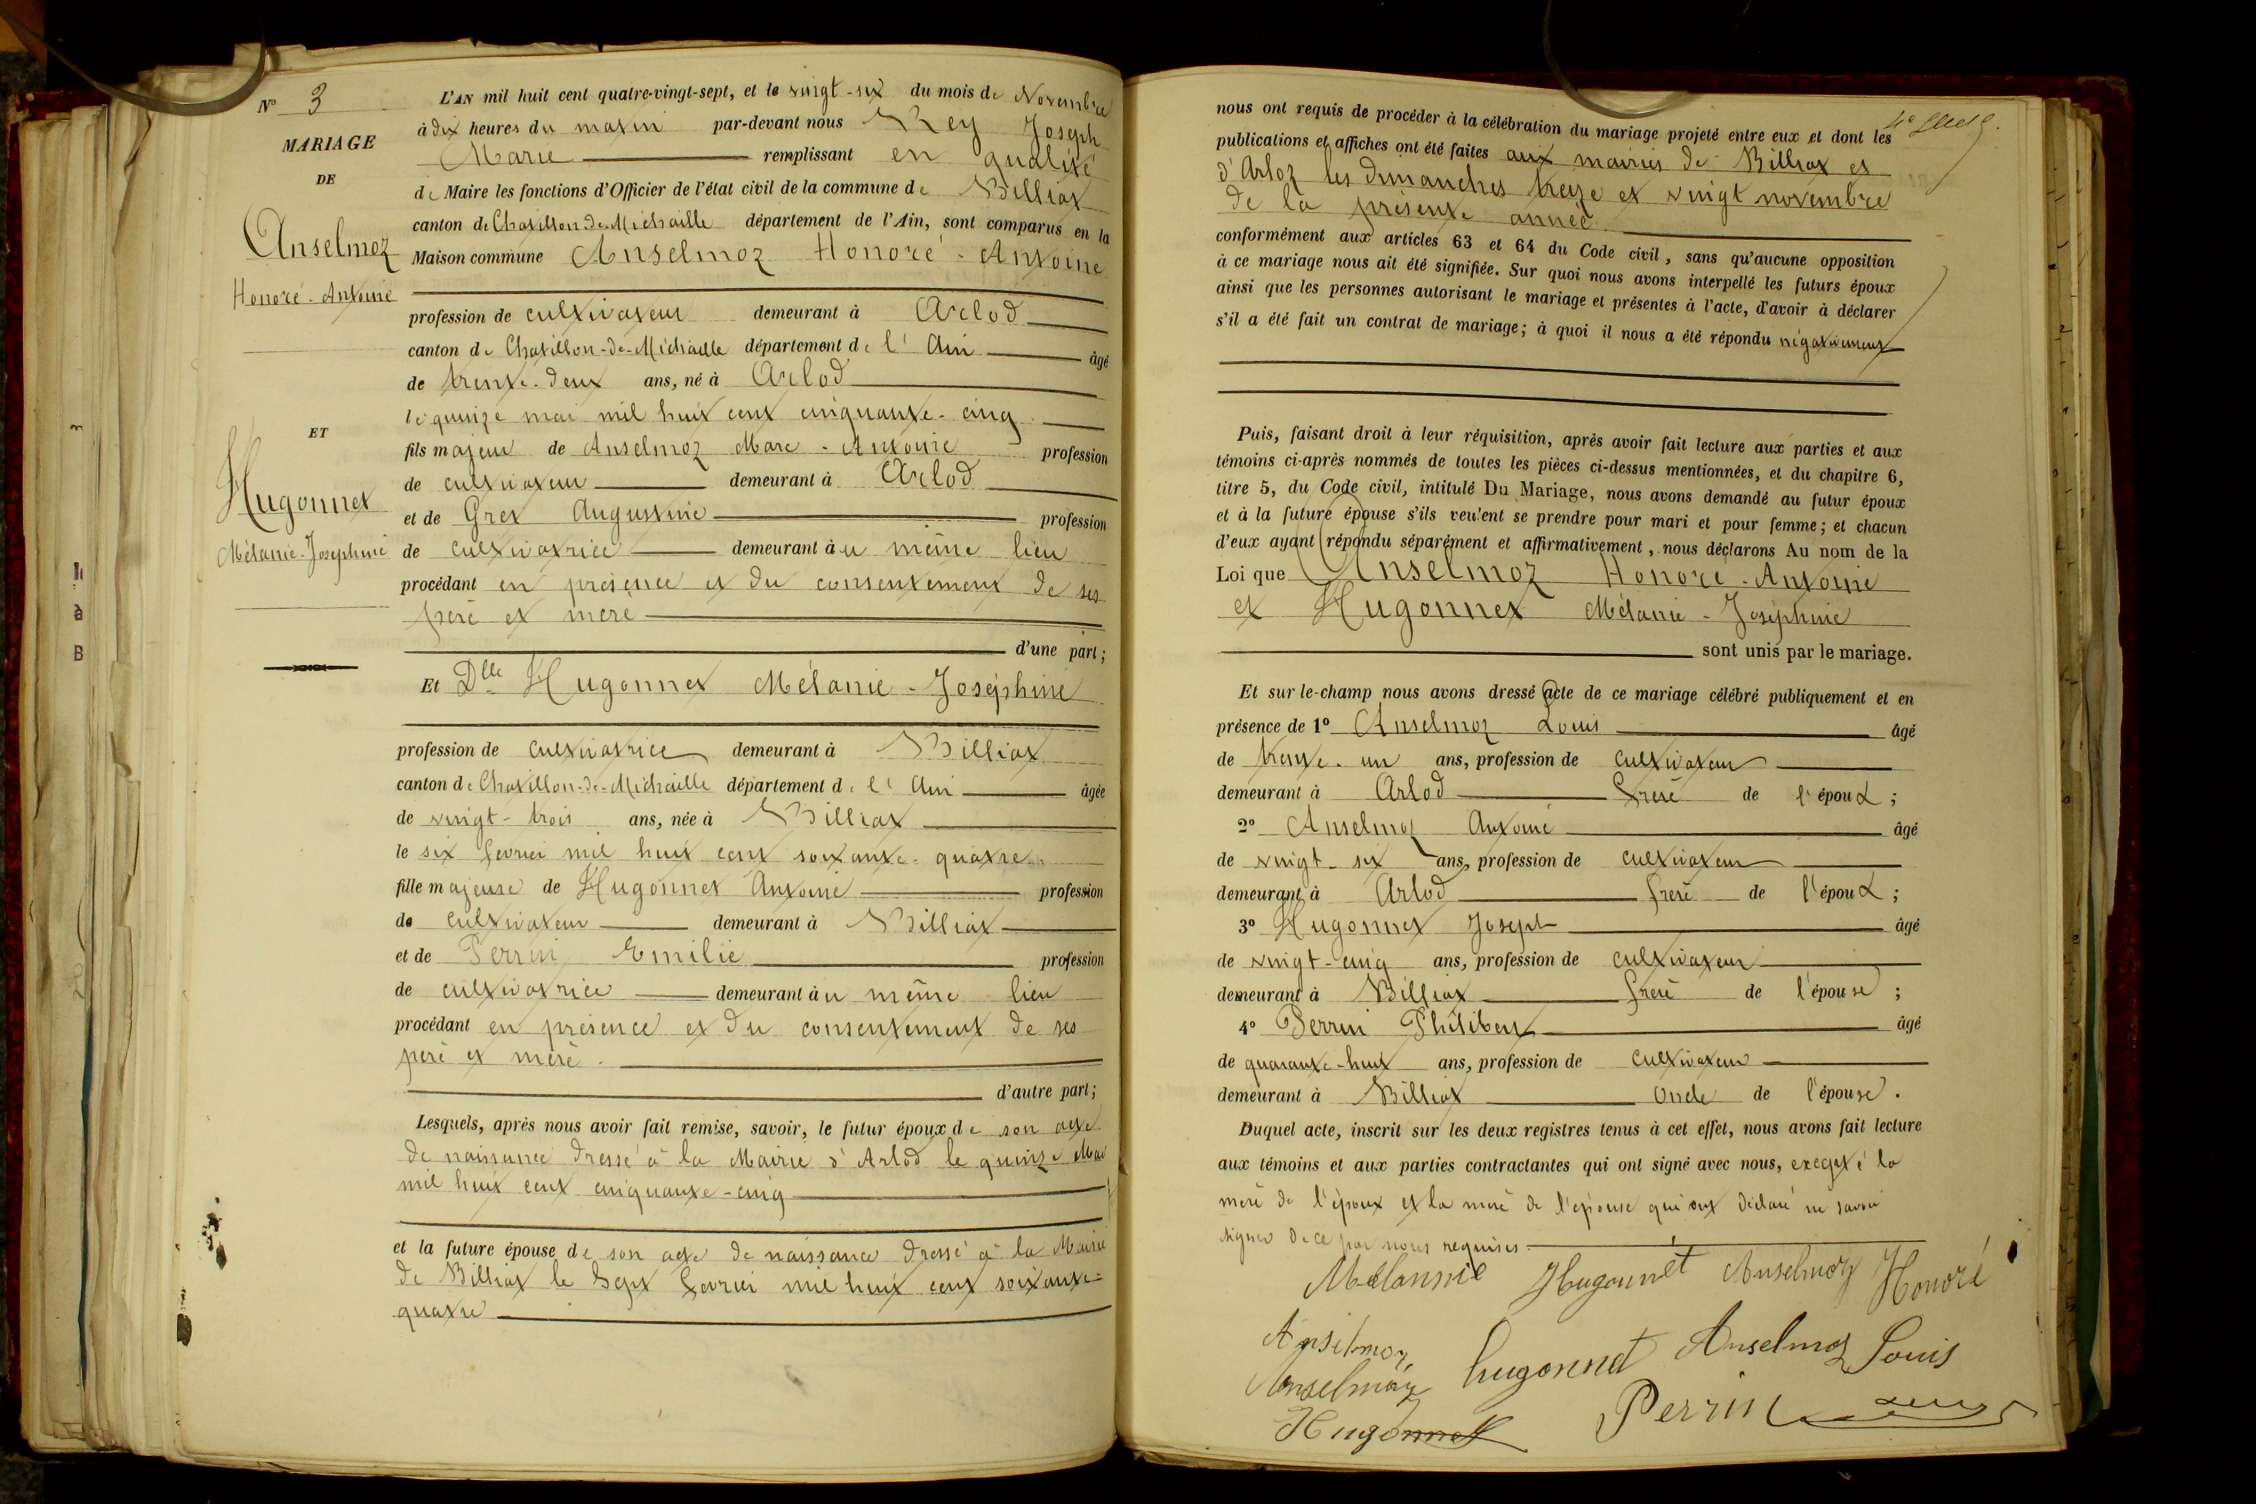 N° 3
MARIAGE
DE
Anselmoz
Honoré-Antoine
ET
Hugonnet
Mélanie-Joséphine
L'AN mil huit cent quatre-vingt-sept, et le vingt-six du mois de Novembre
à dix heures du matin par-devant nous Rey Joseph
Marie remplissant en qualité
de Maire les fonctions d'Officier de l'état civil de la commune de Billiat
canton de Chatillon-de-Michaille département de l'Ain, sont comparus en la
Maison commune Anselmoz Honoré-Antoine
profession de cultivateur demeurant à Arlod
canton de Chatillon-de-Michaille département de l'Ain âgé
de trente-deux ans, né à Arlod
le quinze mai mil huit cent cinquante-cinq
fils majeur de Anselmoz Marc-Antoine profession
de cultivateur demeurant à Arlod
et de Gret Augustine profession
de cultivatrice demeurant à u même lieu
procédant en présence et du consentement de ses
père et mère
d'une part;
Et Dlle Hugonnet Mélanie-Joséphine
profession de cultivatrice demeurant à Billiat
canton de Chatillon-de-Michaille département de l'Ain âgée
de vingt-trois ans, née à Billiat
le six fevrier mil huit cent soixante-quatre
fille majeure de Hugonnet Antoine profession
de cultivateur demeurant à Billiat
et de Perrin Emilie profession
de cultivatrice demeurant à u même lieu
procédant en présence et du consentement de ses
père et mère.
d'autre part;
Lesquels, après nous avoir fait remise, savoir, le futur époux de son acte
de naissance dressé à la Mairie d'Arlod le quinze Mai
mil huit cent cinquante-cinq
et la future épouse de son acte de naissance dressé à la Mairie
de Billiat le Sept fevrier mil huit cent soixante-
quatre
nous ont requis de procéder à la célébration du mariage projeté entre eux et dont les
publications et affiches ont été faites aux mairies de Billiat et
d'Arloz les dimanches treize et vingt novembre
de la présente année.
conformément aux articles 63 et 64 du Code civil, sans qu'aucune opposition
à ce mariage nous ait été signifiée. Sur quoi nous avons interpellé les futurs époux
ainsi que les personnes autorisant le mariage et présentes à l'acte, d'avoir à déclarer
s'il a été fait un contrat de mariage; à quoi il nous a été répondu négativement
Puis, faisant droit à leur réquisition, après avoir fait lecture aux parties et aux
témoins ci-après nommés de toutes les pièces ci-dessus mentionnées, et du chapitre 6,
titre 5, du Code civil, intitulé Du Mariage, nous avons demandé au futur époux
et à la future épouse s'ils veulent se prendre pour mari et pour femme; et chacun
d'eux ayant répondu séparément et affirmativement, nous déclarons Au nom de la
Loi que Anselmoz Honoré-Antoine
et Hugonnet Mélanie-Joséphine
sont unis par le mariage.
Et sur-le-champ nous avons dressé acte de ce mariage célébré publiquement et en
présence de 1° Anselmoz Louis âgé
de trente-un ans, profession de cultivateur
demeurant à Arlod frère de l'époux;
2° Anselmoz Antoine âgé
de vingt-six ans, profession de cultivateur
demeurant à Arlod frère de l'époux;
3° Hugonnet Joseph âgé
de vingt-cinq ans, profession de cultivateur
demeurant à Billiat frère de l'épouse;
4° Perrin Philibert âgé
de quarante-huit ans, profession de cultivateur
demeurant à Billiat Oncle de l'épouse.
Duquel acte, inscrit sur les deux registres tenus à cet effet, nous avons fait lecture
aux témoins et aux parties contractantes qui ont signé avec nous, excepté la
mère de l'époux et la mère de l'épouse qui ont déclaré ne savoir
signer de ce par nous requises.
Mélannie Hugonnet Anselmoz Honoré
Anselmoz
Anselmoz hugonnet Anselmoz Louis
Hugonnet Perrin